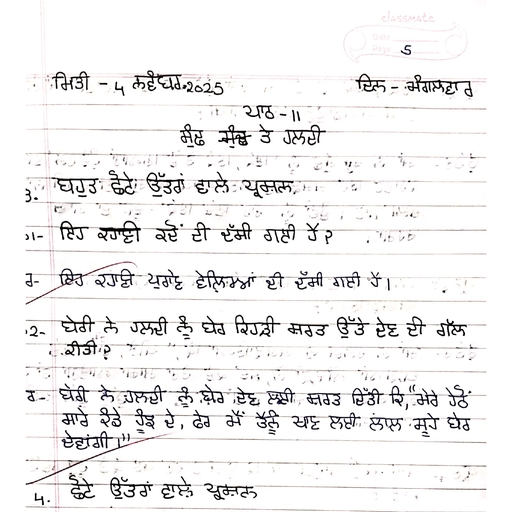 classmate
Date
Page 5
ਮਿਤੀ - 4 ਨਵੰਬਰ 2025 ਦਿਨ - ਮੰਗਲਵਾਰ
ਪਾਠ - 11
ਸੁੰਢ ਸੁੰਢ ਤੇ ਹਲਦੀ
3. ਬਹੁਤ ਛੋਟੇ ਉੱਤਰਾਂ ਵਾਲੇ ਪ੍ਰਸ਼ਨ
ਇਹ ਕਹਾਣੀ ਕਦੋਂ ਦੀ ਦੱਸੀ ਗਈ ਹੈ ?
ਇਹ ਕਹਾਣੀ ਪੁਰਾਣੇ ਵੇਲਿਆਂ ਦੀ ਦੱਸੀ ਗਈ ਹੈ ।
2- ਬੇਰੀ ਨੇ ਹਲਦੀ ਨੂੰ ਬੇਰ ਕਿਹੜੀ ਸ਼ਰਤ ਉੱਤੇ ਦੇਣ ਦੀ ਗੱਲ
ਕੀਤੀ ?
ਬੇਰੀ ਨੇ ਹਲਦੀ ਨੂੰ ਬੇਰ ਦੇਣ ਲਈ ਸ਼ਰਤ ਦਿੱਤੀ ਕਿ, "ਮੇਰੇ ਹੇਠੋਂ
ਸਾਰੇ ਕੰਡੇ ਹੂੰਝ ਦੇ, ਫੇਰ ਮੈਂ ਤੈਨੂੰ ਖਾਣ ਲਈ ਲਾਲ ਸੂਹੇ ਬੇਰ
ਦੇਵਾਂਗੀ ।"
4. ਛੋਟੇ ਉੱਤਰਾਂ ਵਾਲੇ ਪ੍ਰਸ਼ਨ